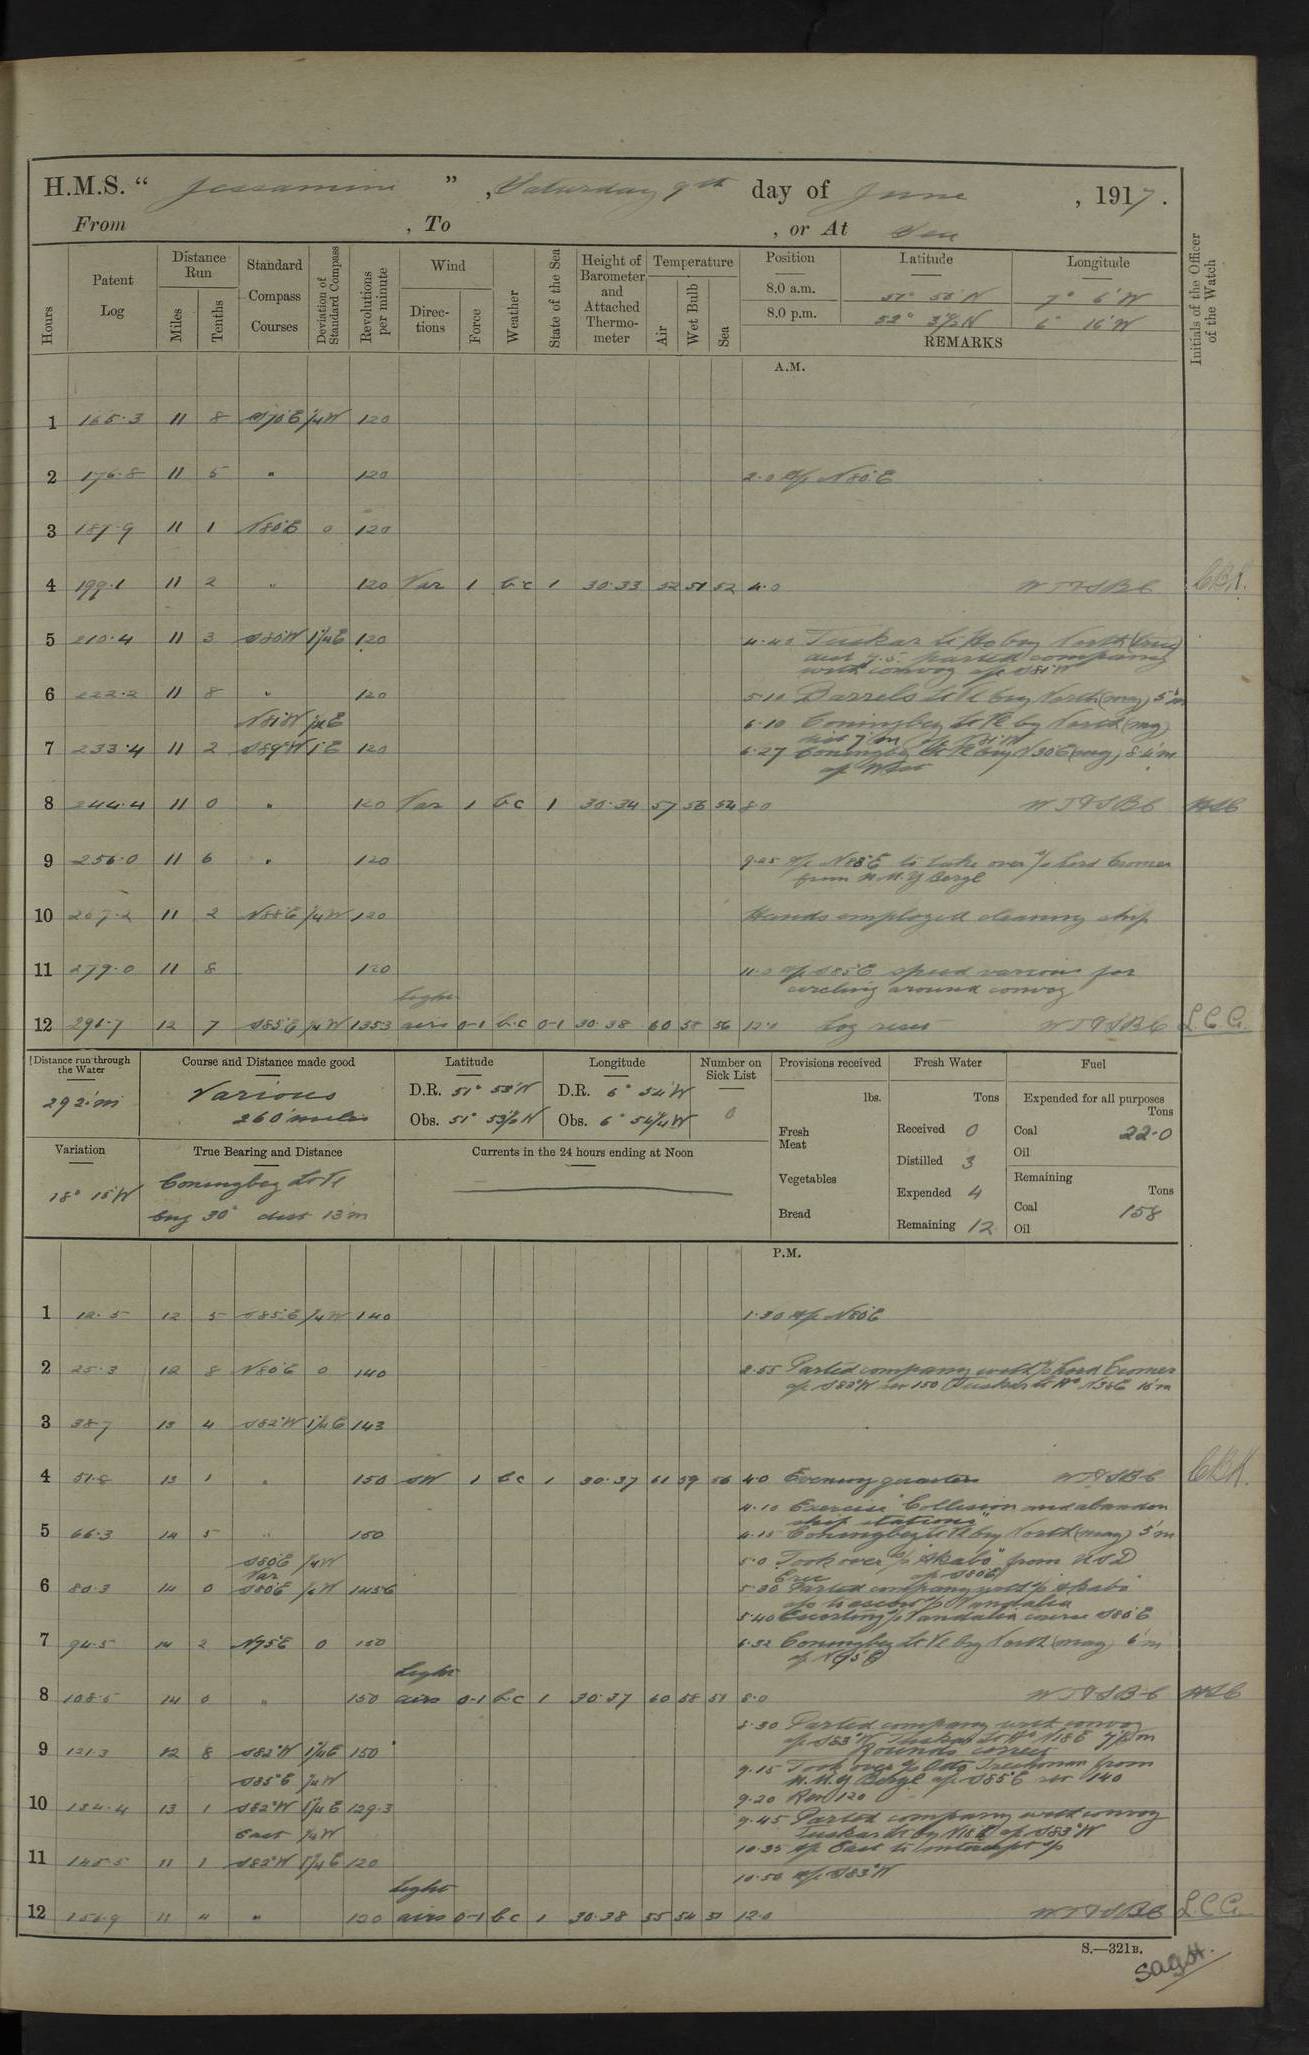 H.M.S. “ Jessamine ” , Saturday 9th day of June , 1917 .
From , To , or At Sea
Hours
Patent Log
Distance Run
Miles
Tenths
Standard Compass Courses
Deviation of Standard Compass
Revolutions per minute
Wind
Direc-tions
Force
Weather
State of the Sea
Height of Barometer and Attached Thermo-meter
Temperature
Air
Wet Bulb
Sea
Position
8.0 a.m.
8.0 p.m.
Latitude
51° 53' N
52° 3½' N
Longitude
7° 6' W
6° 16' W
REMARKS
Initials of the Officer of the Watch
A.M.
1 165.3 11 8 S70E ¼W 120
2 176.8 11 5 " 120 2.0 a/c N80E
3 187.9 11 1 N80E 0 120
4 199.1 11 2 " 120 Var 1 b.c 1 30.33 52 51 52 4.0 W T & S B C CBH.
5 210.4 11 3 S80W 1¼E 120 4.40 Tuskar Lt Ho brg North (true)
dist 7.5. parted company
with convoy a/c S81W
6 222.2 11 8 " 120 5.10 Barrels Lt Vl brg North (mag) 5'm
N81W ¼E 6.10 Coningbeg Lt Vl brg North (mag)
7 233.4 11 2 S89W 1E 120 6.27 Coningbeg Lt Vl brg N30E (mag) 8.4'm
a/c West
8 244.4 11 0 " 120 Var 1 b.c 1 30.34 57 56 54 8.0 W T & S B C
9 256.0 11 6 " 120 9.25 a/c N88E to take over s/s Lord Cromer
from H.M.Y Beryl
10 267.2 11 2 N88E ¼W 120 Hands employed cleaning ship
11 279.0 11 8 120 11.0 a/c S85E speed various for
circling around convoy
light
12 291.7 12 7 S85E ¼W 135.3 airs 0-1 b.c 0-1 30.38 60 58 56 12.0 Log reset W T & S B C L.C.G.
Distance run through the Water
292'm
Course and Distance made good
Various
260 miles
Latitude
D.R. 51° 53' N
Obs. 51° 53½' N
Longitude
D.R. 6° 54' W
Obs. 6° 54¼' W
Number on Sick List
0
Provisions received
lbs.
Fresh Meat
Vegetables
Bread
Fresh Water
Tons
Received 0
Distilled 3
Expended 4
Remaining 12
Fuel
Expended for all purposes
Tons
Coal 22.0
Oil
Remaining
Tons
Coal 158
Oil
Variation
18° 15' W
True Bearing and Distance
Coningbeg Lt Vl
brg 30° dist 13'm
Currents in the 24 hours ending at Noon
P.M.
1 12.5 12 5 S85E ¼W 140 1.30 a/c N80E
2 25.3 12 8 N80E 0 140 2.55 Parted company with s/s Lord Cromer
a/c S82W rev 150 Tuskar Lt Ho N38E 16'm
3 38.7 13 4 S82W 1¼E 143
4 51.8 13 1 " 150 SW 1 b.c 1 30.37 61 59 56 4.0 Evening quarters W T & S B C CBH.
4.10 Exercise "Collision and abandon
ship stations"
5 66.3 14 5 " 150 4.15 Coningbeg Lt Vl brg North (mag) 5'm
S80E ¼W 5.0 Took over s/s "Akabo" from USD
Var a/c S80E
6 80.3 14 0 S80E ¼W 145.6 5.30 Parted company with s/s Akabo
a/c to escort s/s Vandalia
5.40 Escorting s/s Vandalia course S80E
7 94.5 14 2 N75E 0 150 6.32 Coningbeg Lt Vl brg North (mag) 6'm
a/c N75E
light
8 108.5 14 0 " 150 airs 0-1 b.c 1 30.37 60 58 51 8.0 W T & S B C
8.30 Parted company with convoy
a/c S83W Tuskar Lt Ho N18E 7½'m
Rounds correct
9 121.3 12 8 S82W 1¼E 150 9.15 Took over s/s Otto Trechman from
S85E ¼W H.M.Y Beryl a/c S85E rev 140
9.20 Rev 120
10 134.4 13 1 S82W 1¼E 129.3 9.45 Parted company with convoy
East ¼W Tuskar Lt brg N18E a/c S83W
10.35 a/c East to intercept s/s
11 145.5 11 1 S82W 1¼E 120
10.50 a/c S83W
light
12 156.9 11 4 " 120 airs 0-1 b.c 1 30.38 55 54 51 12.0 W T & S B C L.C.G.
S.—321B.